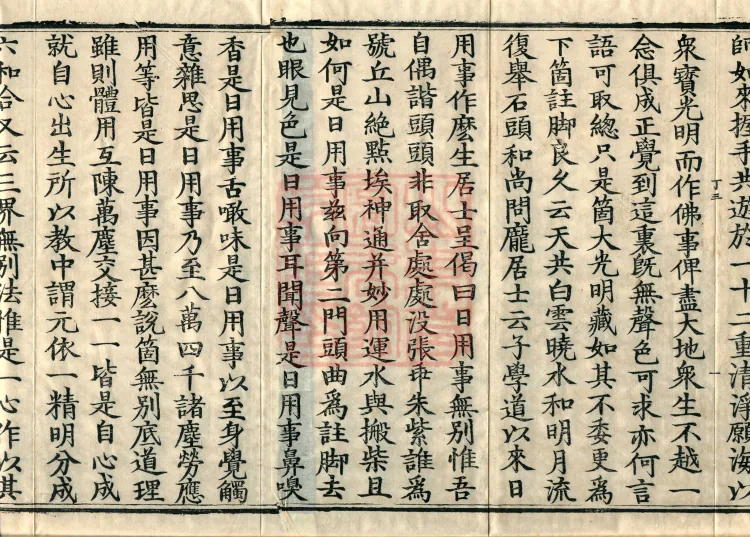 師如來携手共遊於一十二重清淨願海以
丁三
一
衆寶光明而作佛事俾盡大地衆生不越一
念俱成正覺到這裏既無聲色可求亦何言
語可取總只是箇大光明藏如其不委更爲
下箇註脚良久云天共白雲曉水和明月流
復舉石頭和尚問龐居士云子學道以來日
用事作麽生居士呈偈曰日用事無別惟吾
自偶諧頭頭非取舍處處没張乖朱紫誰爲
號丘山絶點埃神通并妙用運水與搬柴且
如何是日用事茲向第二門頭曲爲註脚去
也眼見色是日用事耳聞聲是日用事鼻嗅
香是日用事舌噉味是日用事以至身覺觸
意雜思是日用事乃至八萬四千諸塵勞應
用等皆是日用事因甚麽說箇無別底道理
雖則體用互陳萬塵交接一一皆是自心成
就自心出生所以教中謂元依一精明分成
六和合又云三界無別法惟是一心作以其